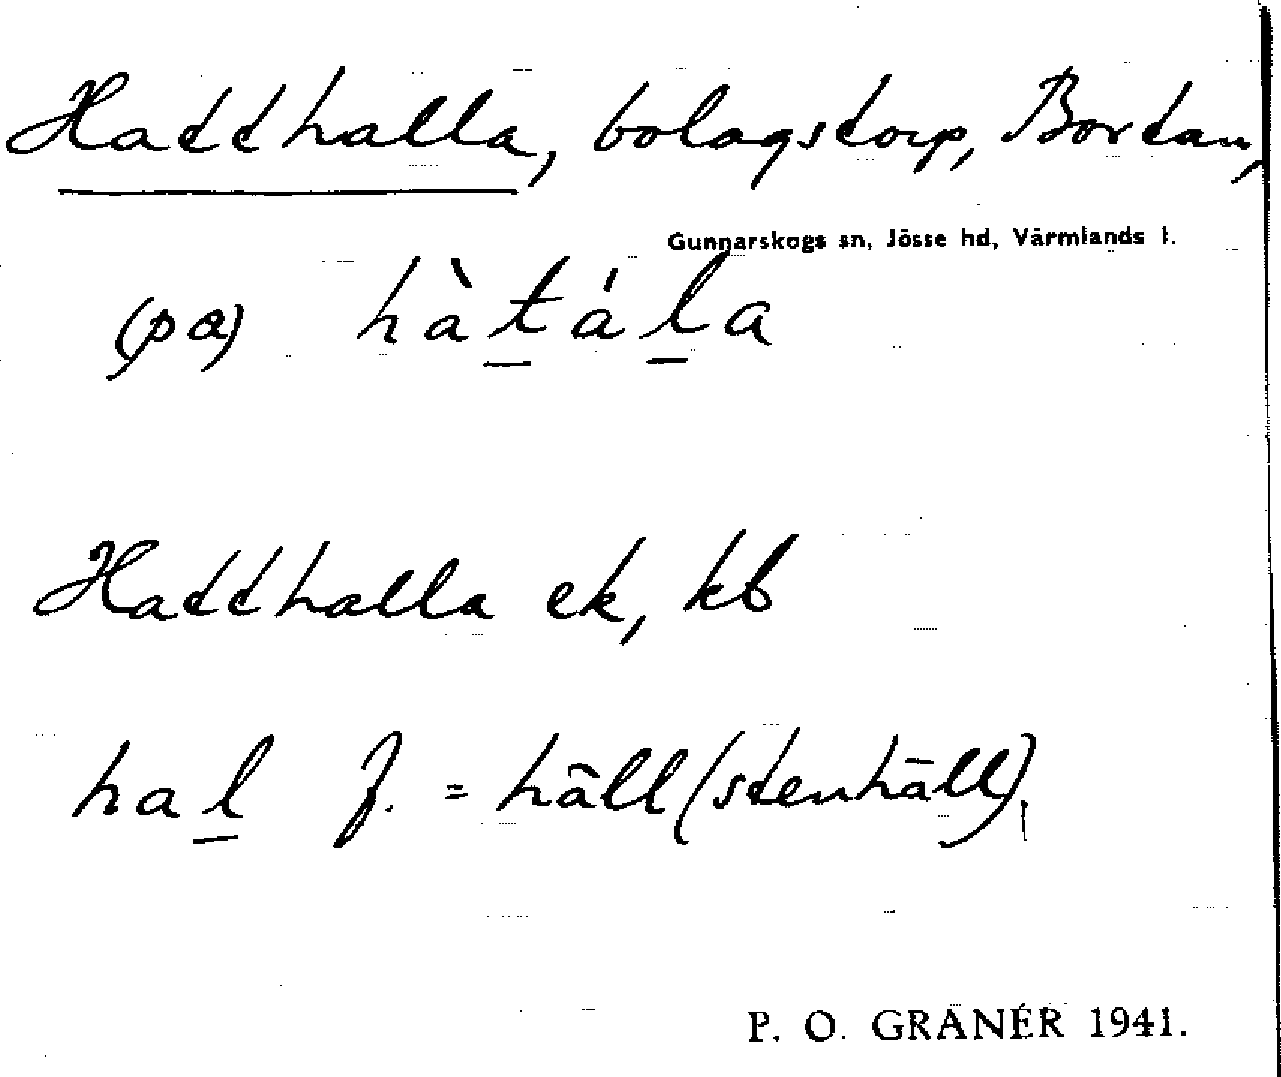 Hatthalla, bolagstorp, Bortan,
Gunnarskogs sn, Jösse hd, Värmlands l.
(pa) hàt̲ál̲a
Hatthalla ek, kb
hal̲ f. = häll (stenhäll).
P. O. GRÄNÉR 1941.